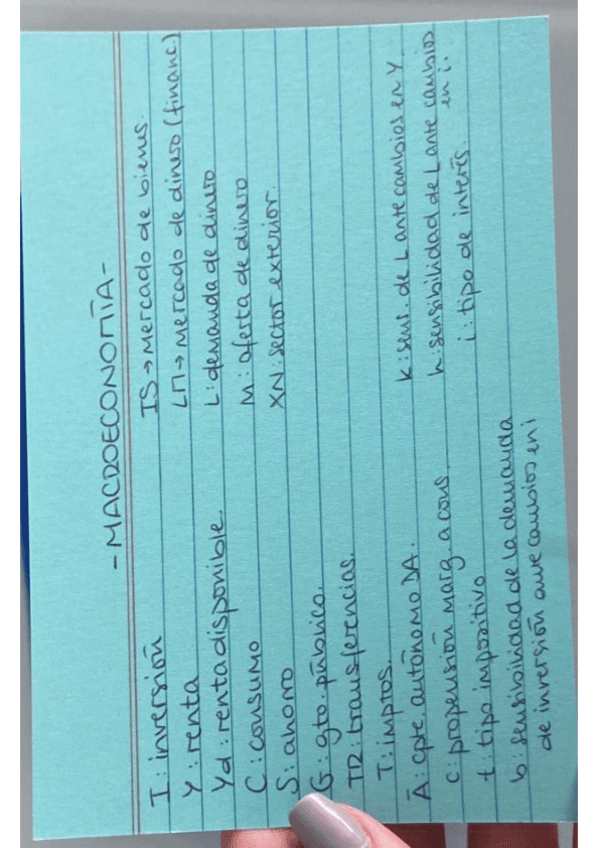 -MACROECONOMÍA-
I: inversión
Y: renta
Yd: renta disponible.
C: consumo
S: ahorro
G: gto. público.
TR: transferencias.
T: imptos.
Ā: cpte. autónomo DA.
c: propensión marg. a cons.
t: tipo impositivo
b: sensibilidad de la demanda
de inversión ante cambios en i
IS → mercado de bienes.
LM → mercado de dinero (financ.)
L: demanda de dinero
M: oferta de dinero
XN: sector exterior.
k: sens. de L ante cambios en Y.
h: sensibilidad de L ante cambios
en i.
i: tipo de interés.